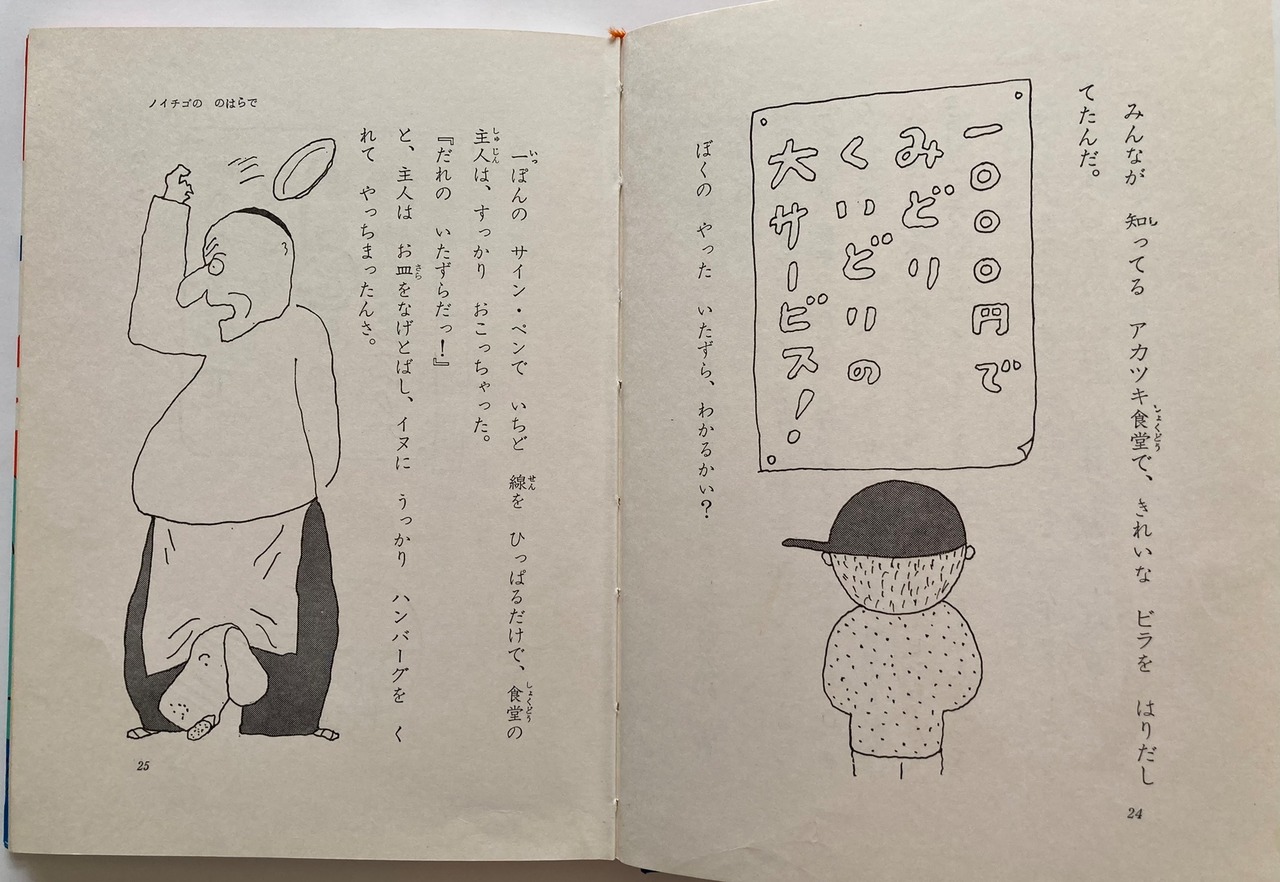 みんなが 知ってる アカツキ食堂で、きれいな ビラを はりだし
てたんだ。
一〇〇〇円で
みどり
くいどりの
大サービス!
ぼくの やった いたずら、わかるかい?
24
ノイチゴの のはらで
一ぽんの サイン・ペンで いちど 線を ひっぱるだけで、食堂の
主人は、すっかり おこっちゃった。
『だれの いたずらだっ!』
と、主人は お皿をなげとばし、イヌに うっかり ハンバーグを く
れて やっちまったんさ。
25